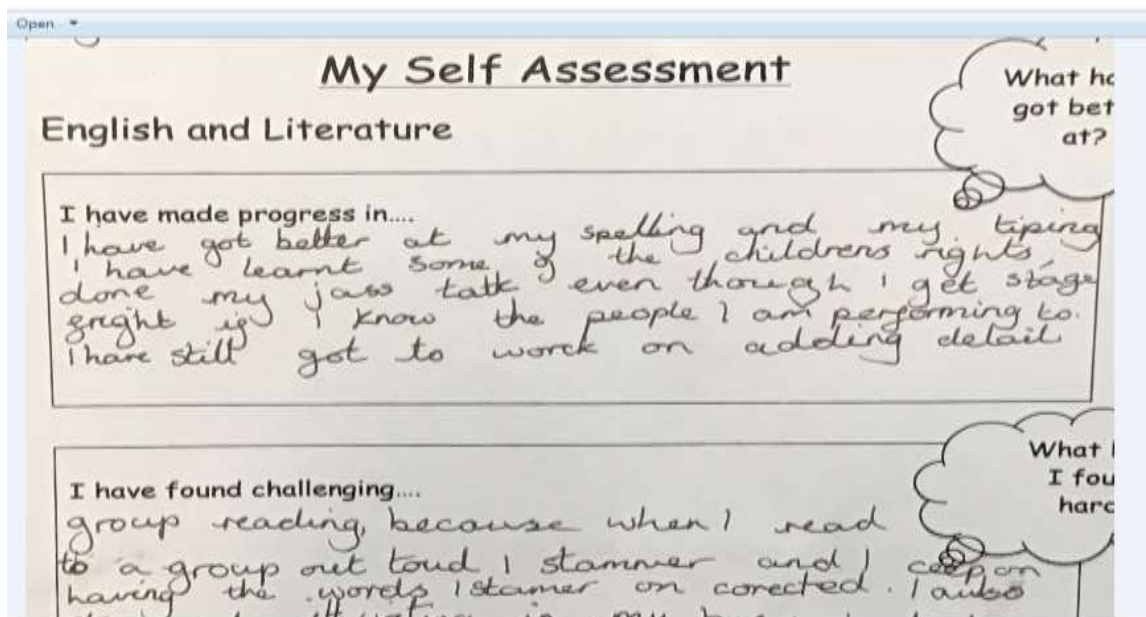 Open
My Self Assessment
What
got bet
at?
English and Literature
I have made progress in....
I have got better at my spelling and my tiping
I have learnt some of the childrens rights,
done my jass talk even thoregh I get stage
fright if I know the people I am performing to.
I have still got to worck on adding detail
What
I fou
harc
I have found challenging....
group reading, because when I read
to a group out loud I stammer and I ceep on
having the words I stamer on corected. I aulso
my